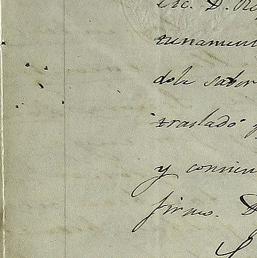 Esc. D. Ro
runament
dole saber
traslado
y convien
firmo. D